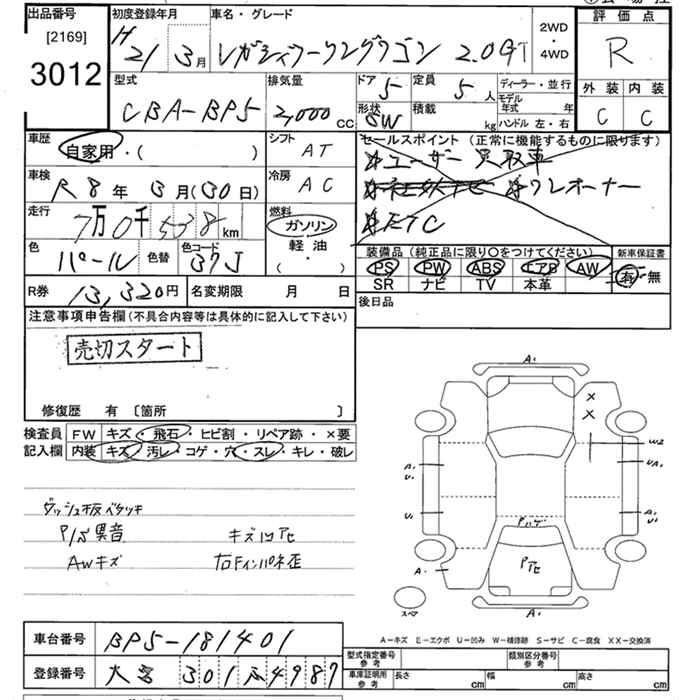 出品番号 初度登録年月 車名・グレード 2WD・4WD 評価点
[2169]
3012
H 21 3月 レガシィツーリングワゴン 2.0GT R
型式 排気量 ドア 定員 ディーラー・並行 外装 内装
CBA-BP5 2,000 CC 5 5人 モデル年式 年
形状 積載 C C
SW kg ハンドル 左・右
車歴 シフト セールスポイント (正常に機能するものに限ります)
自家用・( ) AT ユーザー買取車
車検 冷房 ワンオーナー
R8年 3月(30日) AC ETC
走行 燃料
7万0千538km ガソリン
色 色替 色コード 軽油 装備品(純正品に限り○をつけてください) 新車保証書
パール 37J (・) PS PW ABS エアB AW 有・無
SR ナビ TV 本革
R券 13,320円 名変期限 月 日 後日品
注意事項申告欄(不具合内容等は具体的に記入して下さい)
売切スタート
修復歴 有 〔箇所 〕
検査員 FW キズ・飛石・ヒビ割・リペア跡・×要
記入欄 内装 キズ・汚レ・コゲ・穴・スレ・キレ・破レ
ダッシュ板ベタツキ
P/S異音 キズ凹アセ
AWキズ 右Fインパネ歪
A1
× ×
W2
A1 U1 UA1
U1 A1 U1
Pハゲ
Pアセ
A1
スペア A1
A-キズ E-エクボ U-凹み W-補修跡 S-サビ C-腐食 XX-交換済
車台番号 BP5-181401 型式指定番号 参考 類別区分番号 参考
登録番号 大宮 301 4987 車庫証明用 参考 長さ cm 幅 cm 高さ cm